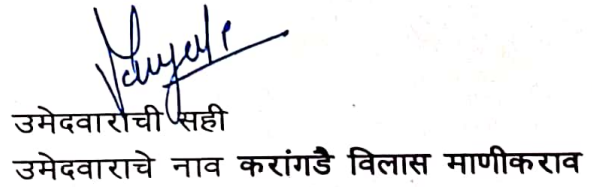 उमेदवाराची सही
उमेदवाराचे नाव करांगडै विलास माणीकराव